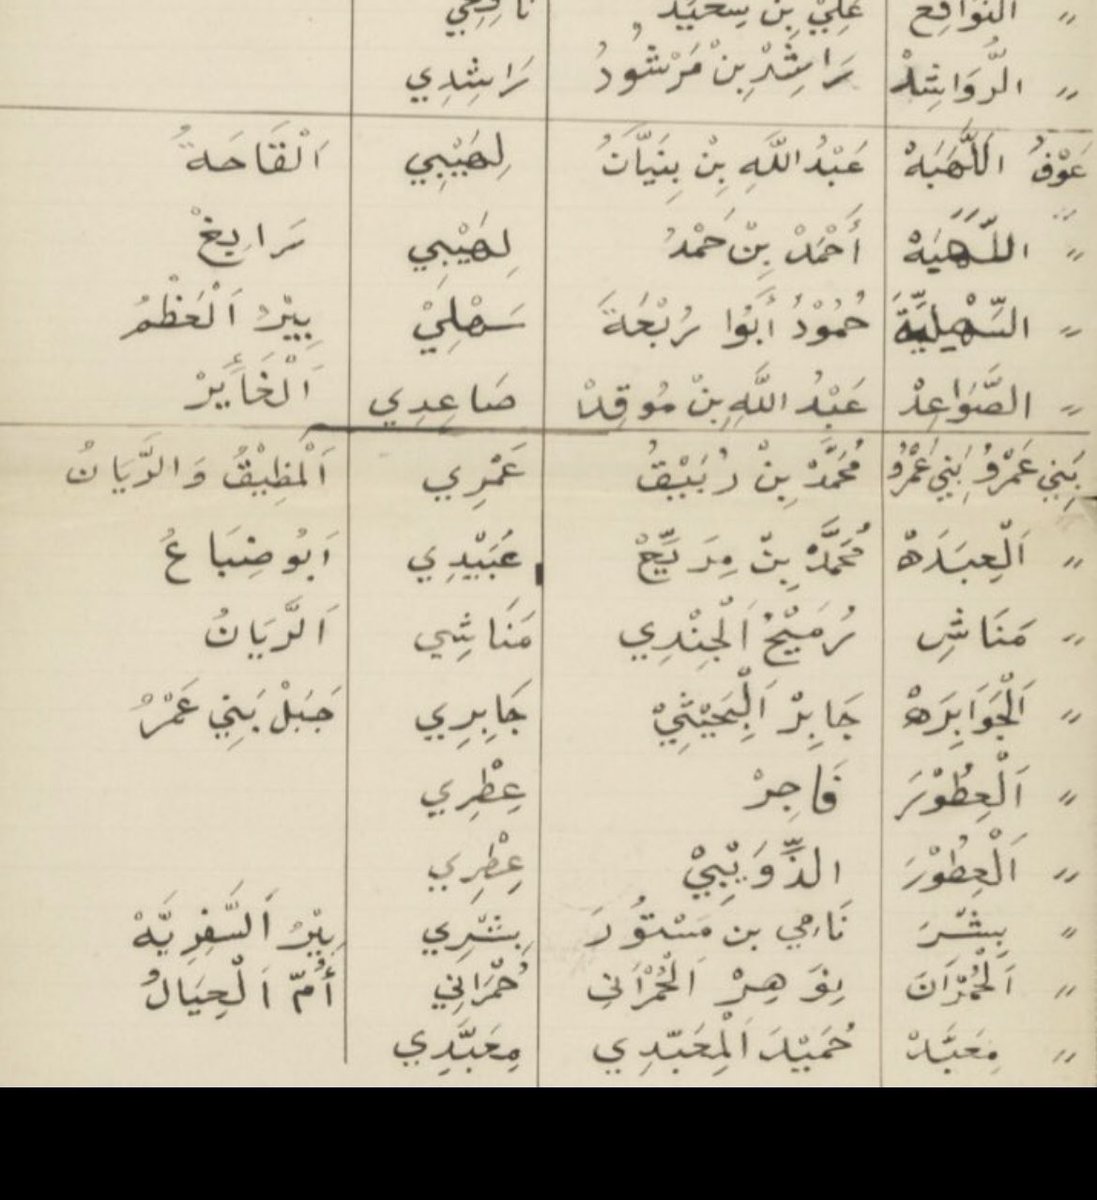 〃 النَّوَافِعْ عَلِيْ بِنْ سِعَيِّدْ نَافِعِي
〃 الرَّوَاشِدْ رَاشِدْ بِنْ مَرْشُودْ رَاشِدِي
عَوْفْ اَللَّهَبَهْ عَبْدُ اللَّهِ بِنْ بِنَيَّانْ لِهَيْبِي اَلْقَاحَةْ
〃 اللَّهَبَهْ أَحْمَدْ بِنْ حَمْدْ لِهَيْبِي رَابِغْ
〃 السِّهْلِيَّةَ حُمُوْدْ أَبُوا رُبْعَةَ سَهْلِيْ بِيْرْ اَلْعَظْمْ
〃 الصَّوَاعِدْ عَبْدُ اللَّهِ بِنْ مُوقِدْ صَاعِدِي اَلْغَايَرْ
بَنِي عَمْرُو بَنِي عَمْرُو مُحَمَّدْ بِنْ رُبَيْقْ عَمْرِي اَلْمَظِيْقْ وَالرَّيَانْ
〃 اَلْعِبَدَهْ مُحَمَّدْ بِنْ مِرَيِّحْ عُبَيْدِي اَبُو ضِبَاعْ
〃 مَنَاشِ رُمَيْحْ اَلْجِنْدِي مَنَاشِي اَلرَّيَانْ
〃 اَلْجَوَابِرَهْ جَابِرْ اَلْبَحَيْثِيْ جَابِرِي جَبَلْ بَنِي عَمْرُ
〃 اَلْعِطُوْرَ فَاجِرْ عِطْرِي
〃 اَلْعِطُوْرَ الذِّوَيْبِيْ عِطْرِي
〃 بِشْرَ نَاجِي بن مَسْتُوْرَ بِشْرِي بِيْرْ اَلسَّفِرِيَّهْ
〃 اَلْحُمْرَانَ نِوَهِرْ اَلْحُمْرَانِي حُمْرَانِي أُمّ اَلْعِيَالْ
〃 مِعَبَّدْ حُمَيْدَ اَلْمِعَبَّدِي مِعَبَّدِي